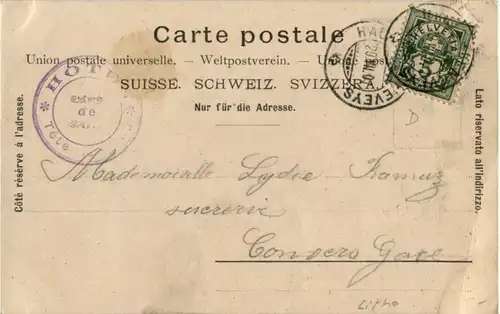 Carte postale
Union postale universelle. – Weltpostverein. –
SUISSE. SCHWEIZ. SVIZZERA.
Nur für die Adresse.
Côté réservé à l'adresse.
Lato riservato all'indirizzo.
HÔTEL
de
Tête
HELVETIA
D
Mademoiselle Lydie Ramuz
Convers Gare
Litho